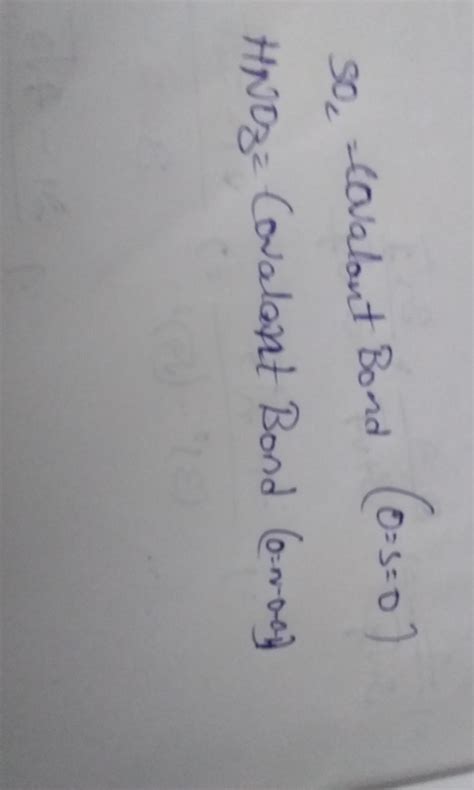 SO₂ = Covalant Bond (O=S=O)
HNO₃ = Covalant Bond